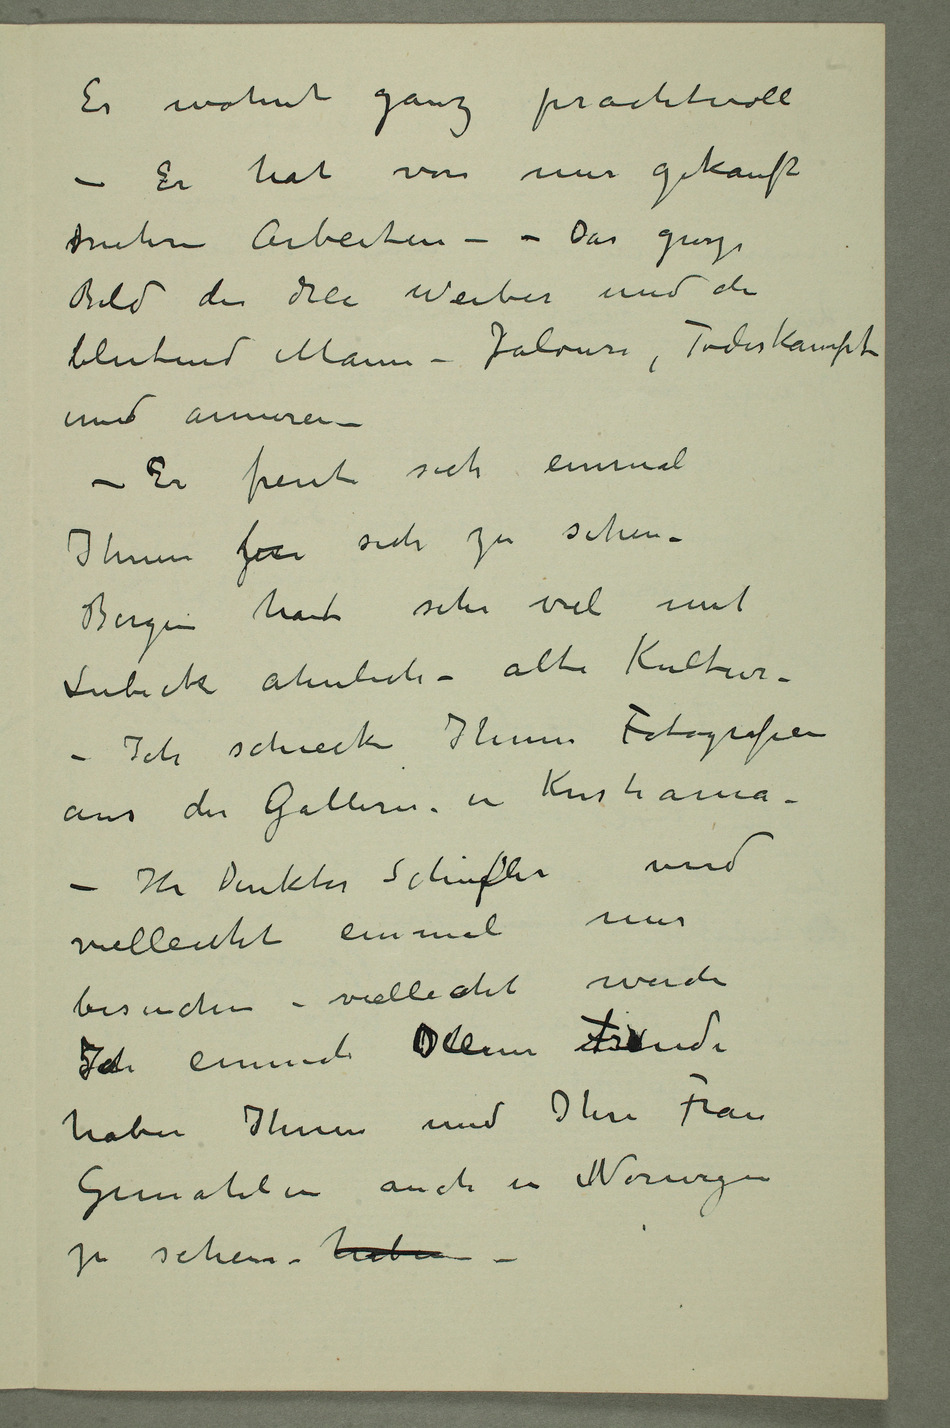 Er wohnt ganz prachtvoll
– Er hat von mir gekauft
mehre Arbeiten – – Das groze
Bild die drei Weiber und der
blutend Mann – Jalousi, Todeskampft
und anneren –
– Er freut sich einmal
Ihnen sich zu sehen –
Bergen hat sehr viel mit
Lubeck ahnlich – alte Kultur –
– Ich schicke Ihnen Fotografien
aus der Gallerie in Kristiania –
– Hr Direktor Schiefler wird
vielleicht einmal mir
besuchen – vielleicht werde
Ich einmal die Freude
haben Ihnen und Ihre Frau
Gemahlin auch in Norwegen
zu sehen – haben –